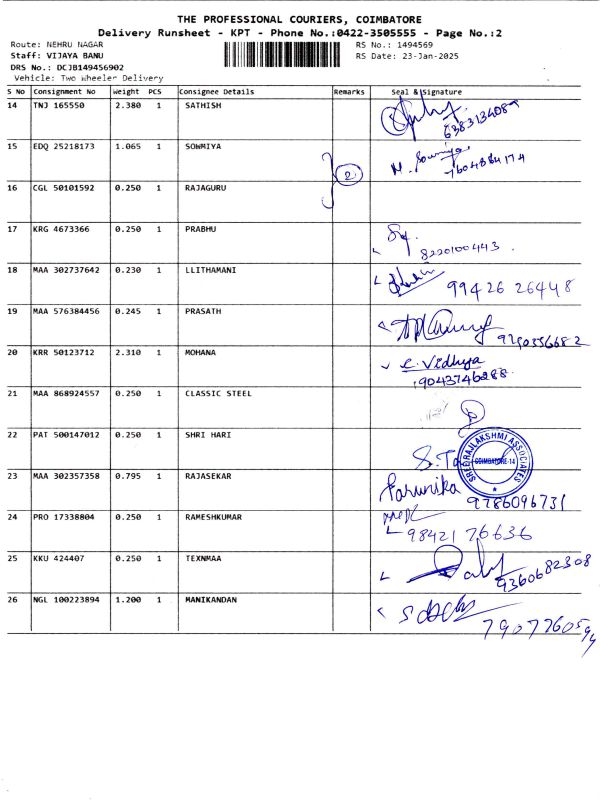 THE PROFESSIONAL COURIERS, COIMBATORE
Delivery Runsheet - KPT - Phone No.:0422-3505555 - Page No.:2
Route: NEHRU NAGAR RS No.: 1494569
Staff: VIJAYA BANU RS Date: 23-Jan-2025
DRS No.: DCJB149456902
Vehicle: Two Wheeler Delivery
S No Consignment No Weight PCS Consignee Details Remarks Seal & Signature
14 TNJ 165550 2.380 1 SATHISH
15 EDQ 25218173 1.065 1 SOWMIYA N. Sowmiya
7604884174
2
16 CGL 50101592 0.250 1 RAJAGURU
17 KRG 4673366 0.250 1 PRABHU
8220100443
18 MAA 302737642 0.230 1 LLITHAMANI 99426 26448
19 MAA 576384456 0.245 1 PRASATH
20 KRR 50123712 2.310 1 MOHANA C. Vidhya
9043746288
21 MAA 868924557 0.250 1 CLASSIC STEEL
22 PAT 500147012 0.250 1 SHRI HARI
COIMBATORE-14
23 MAA 302357358 0.795 1 RAJASEKAR Parunika
9786096731
24 PRO 17338804 0.250 1 RAMESHKUMAR
98421 76636
25 KKU 424407 0.250 1 TEXNMAA
9360682308
26 NGL 100223894 1.200 1 MANIKANDAN
7907760594